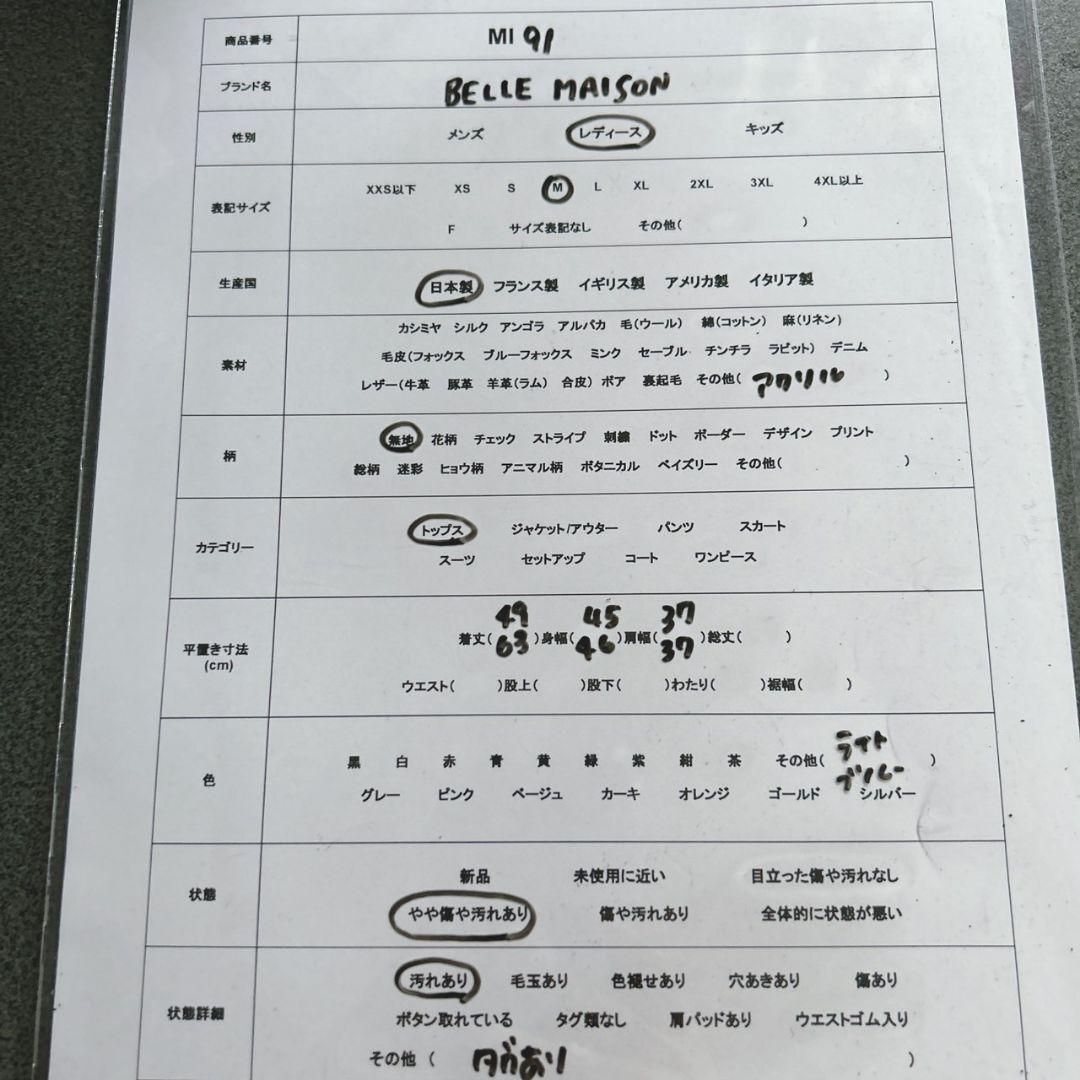 商品番号 MI 91
ブランド名 BELLE MAISON
性別 メンズ レディース キッズ
表記サイズ XXS以下 XS S M L XL 2XL 3XL 4XL以上
F サイズ表記なし その他( )
生産国 日本製 フランス製 イギリス製 アメリカ製 イタリア製
カシミヤ シルク アンゴラ アルパカ 毛(ウール) 綿(コットン) 麻(リネン)
毛皮(フォックス ブルーフォックス ミンク セーブル チンチラ ラビット) デニム
素材
レザー(牛革 豚革 羊革(ラム) 合皮) ボア 裏起毛 その他( アクリル )
無地 花柄 チェック ストライプ 刺繍 ドット ボーダー デザイン プリント
柄
総柄 迷彩 ヒョウ柄 アニマル柄 ボタニカル ペイズリー その他( )
トップス ジャケット/アウター パンツ スカート
カテゴリー
スーツ セットアップ コート ワンピース
49 45 37
着丈( 63 )身幅( 46 )肩幅( 37 )総丈( )
平置き寸法
(cm)
ウエスト( )股上( )股下( )わたり( )裾幅( )
ライト
黒 白 赤 青 黄 緑 紫 紺 茶 その他( )
色
ブルー
グレー ピンク ベージュ カーキ オレンジ ゴールド シルバー
新品 未使用に近い 目立った傷や汚れなし
状態
やや傷や汚れあり 傷や汚れあり 全体的に状態が悪い
汚れあり 毛玉あり 色褪せあり 穴あきあり 傷あり
状態詳細
ボタン取れている タグ類なし 肩パッドあり ウエストゴム入り
その他 ( タグあり )